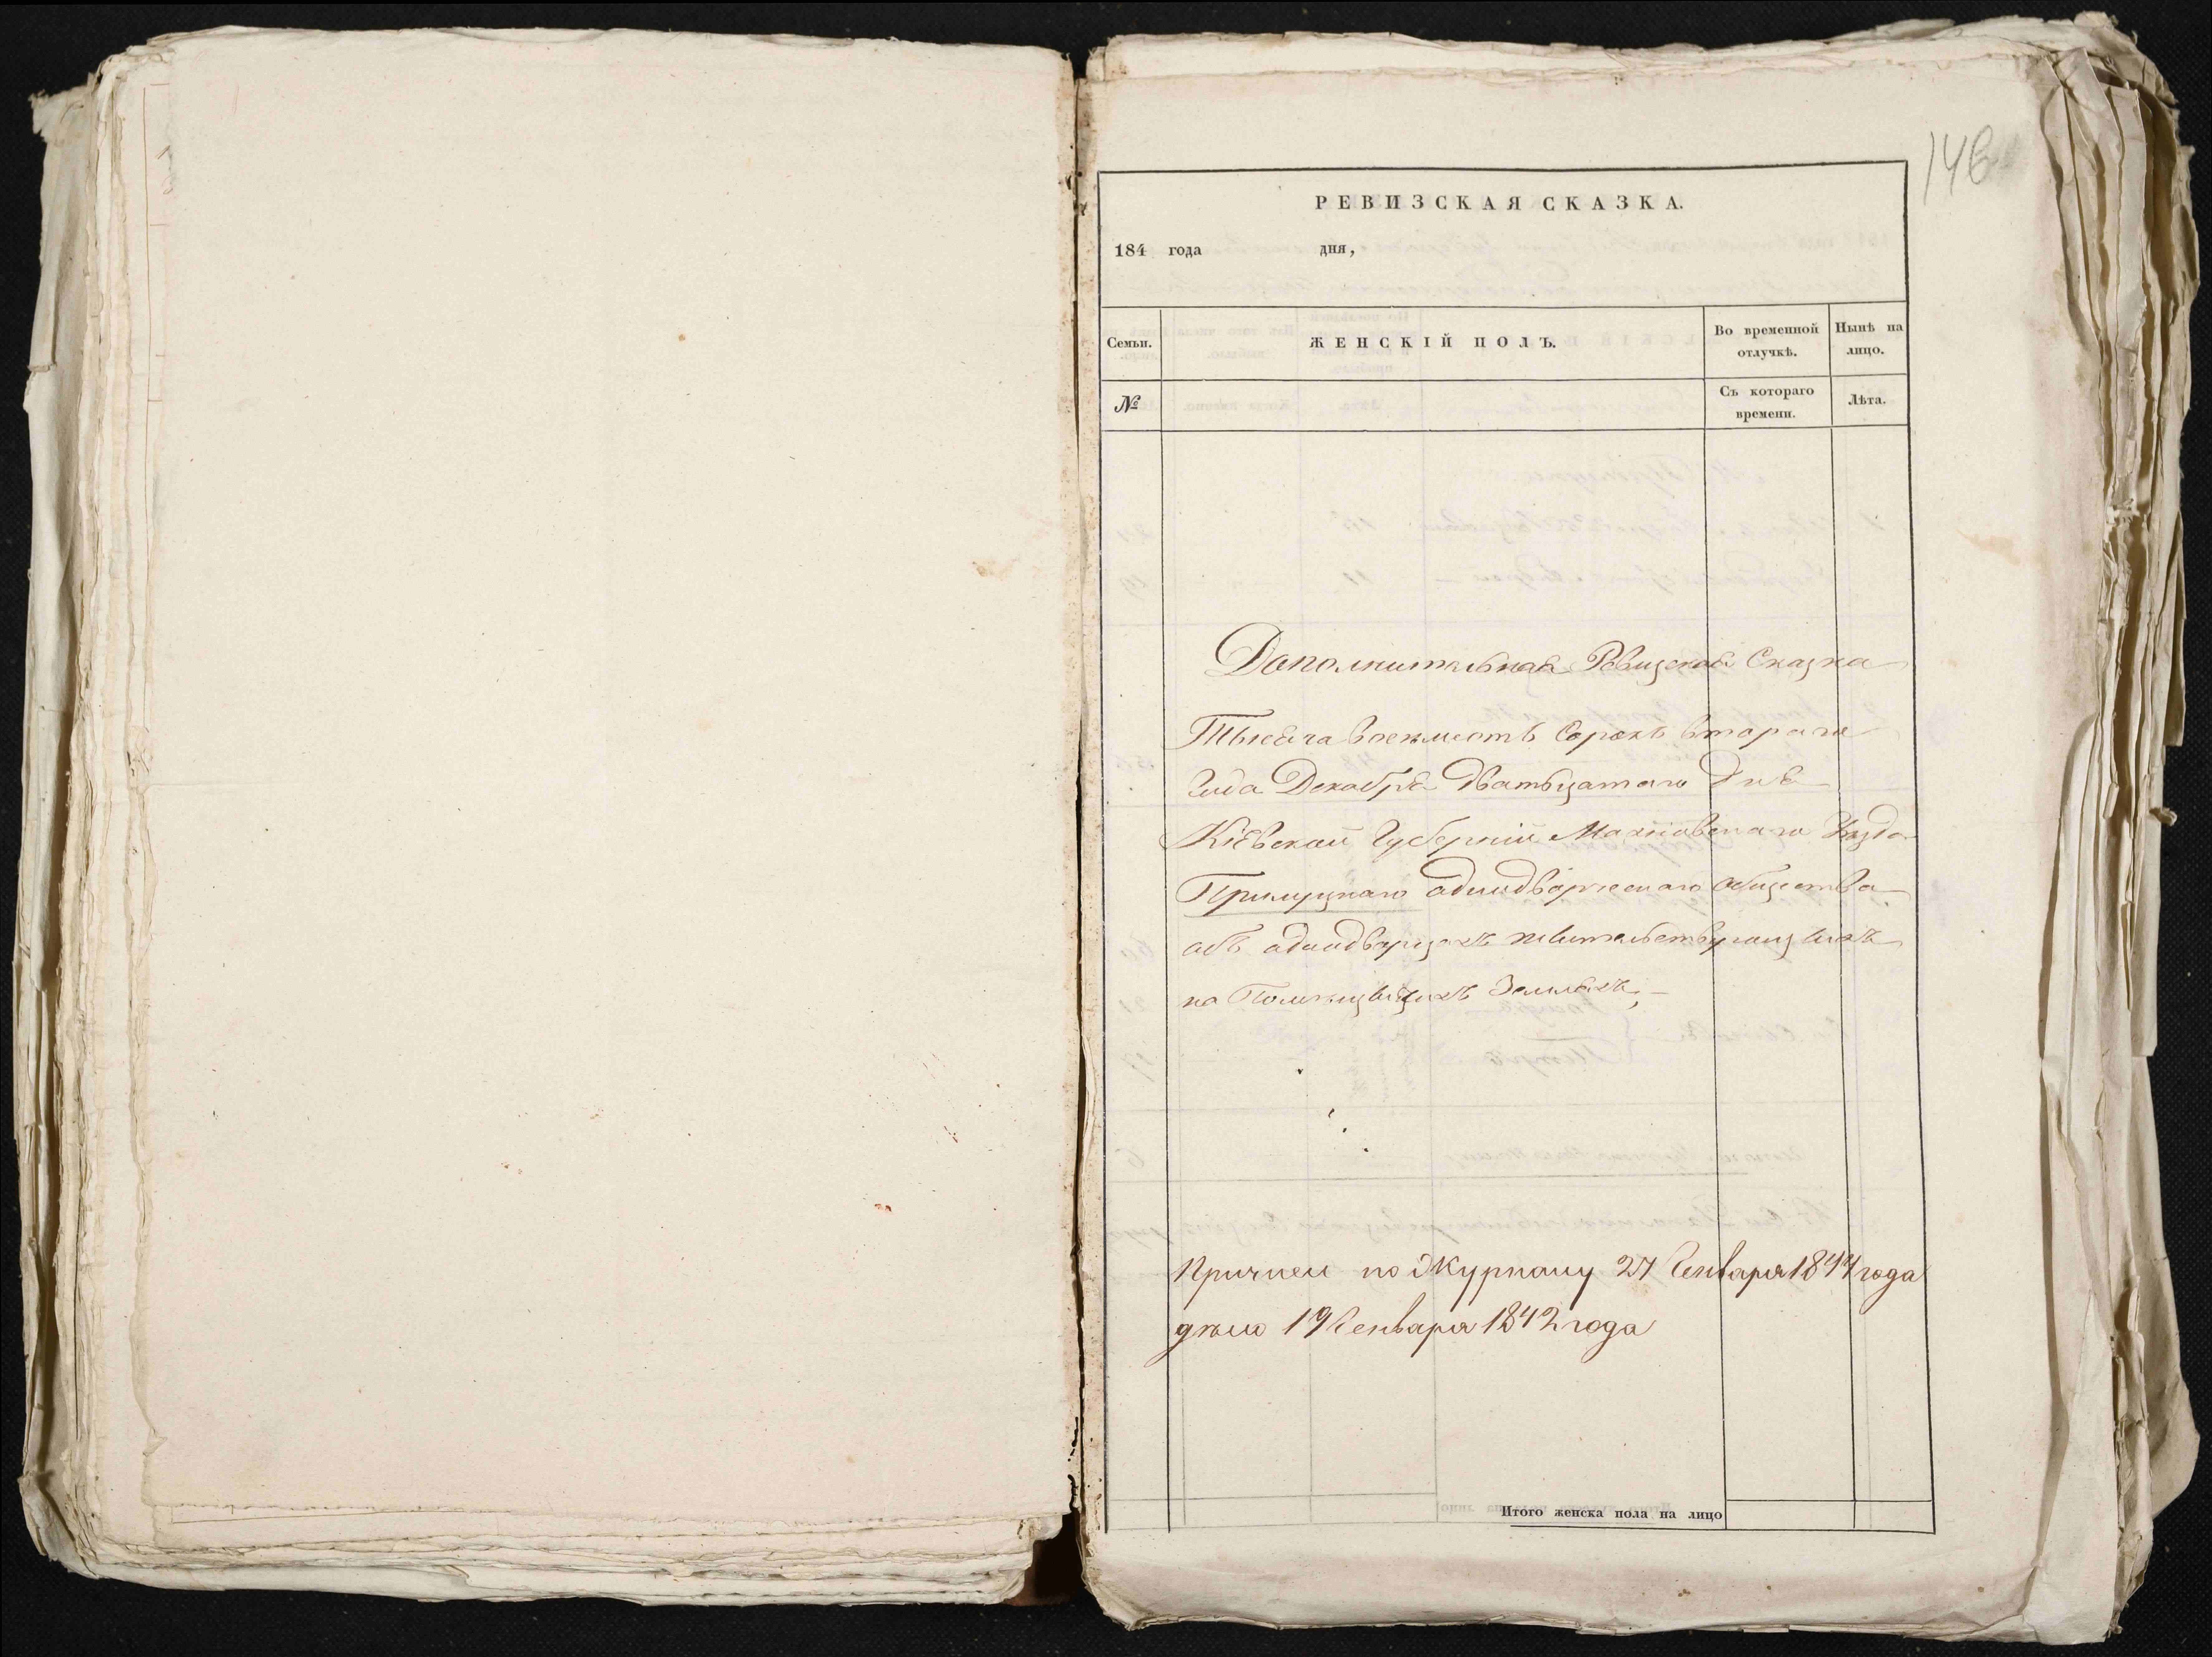 146
РЕВИЗСКАЯ СКАЗКА.
184 года дня,
Семьи.
ЖЕНСКІЙ ПОЛЪ.
Во временной отлучкѣ.
Нынѣ на лицо.
№
Съ котораго времени.
Лѣта.
Дополнительная Ревизская Сказка
Тысяча восемьсотъ Сорокъ втораго
Года Декабря Дватьцатаго Дня
Кіевской Губерніи Махновскаго Уѣзда
Прилуцкаго однодворческаго общества
объ однодворцахъ жительствующихъ
на Помѣщицкихъ Земляхъ;
по Журналу 27 Генваря 1844 года
дѣло 19 Генваря 1842 года
Итого женска пола на лицо